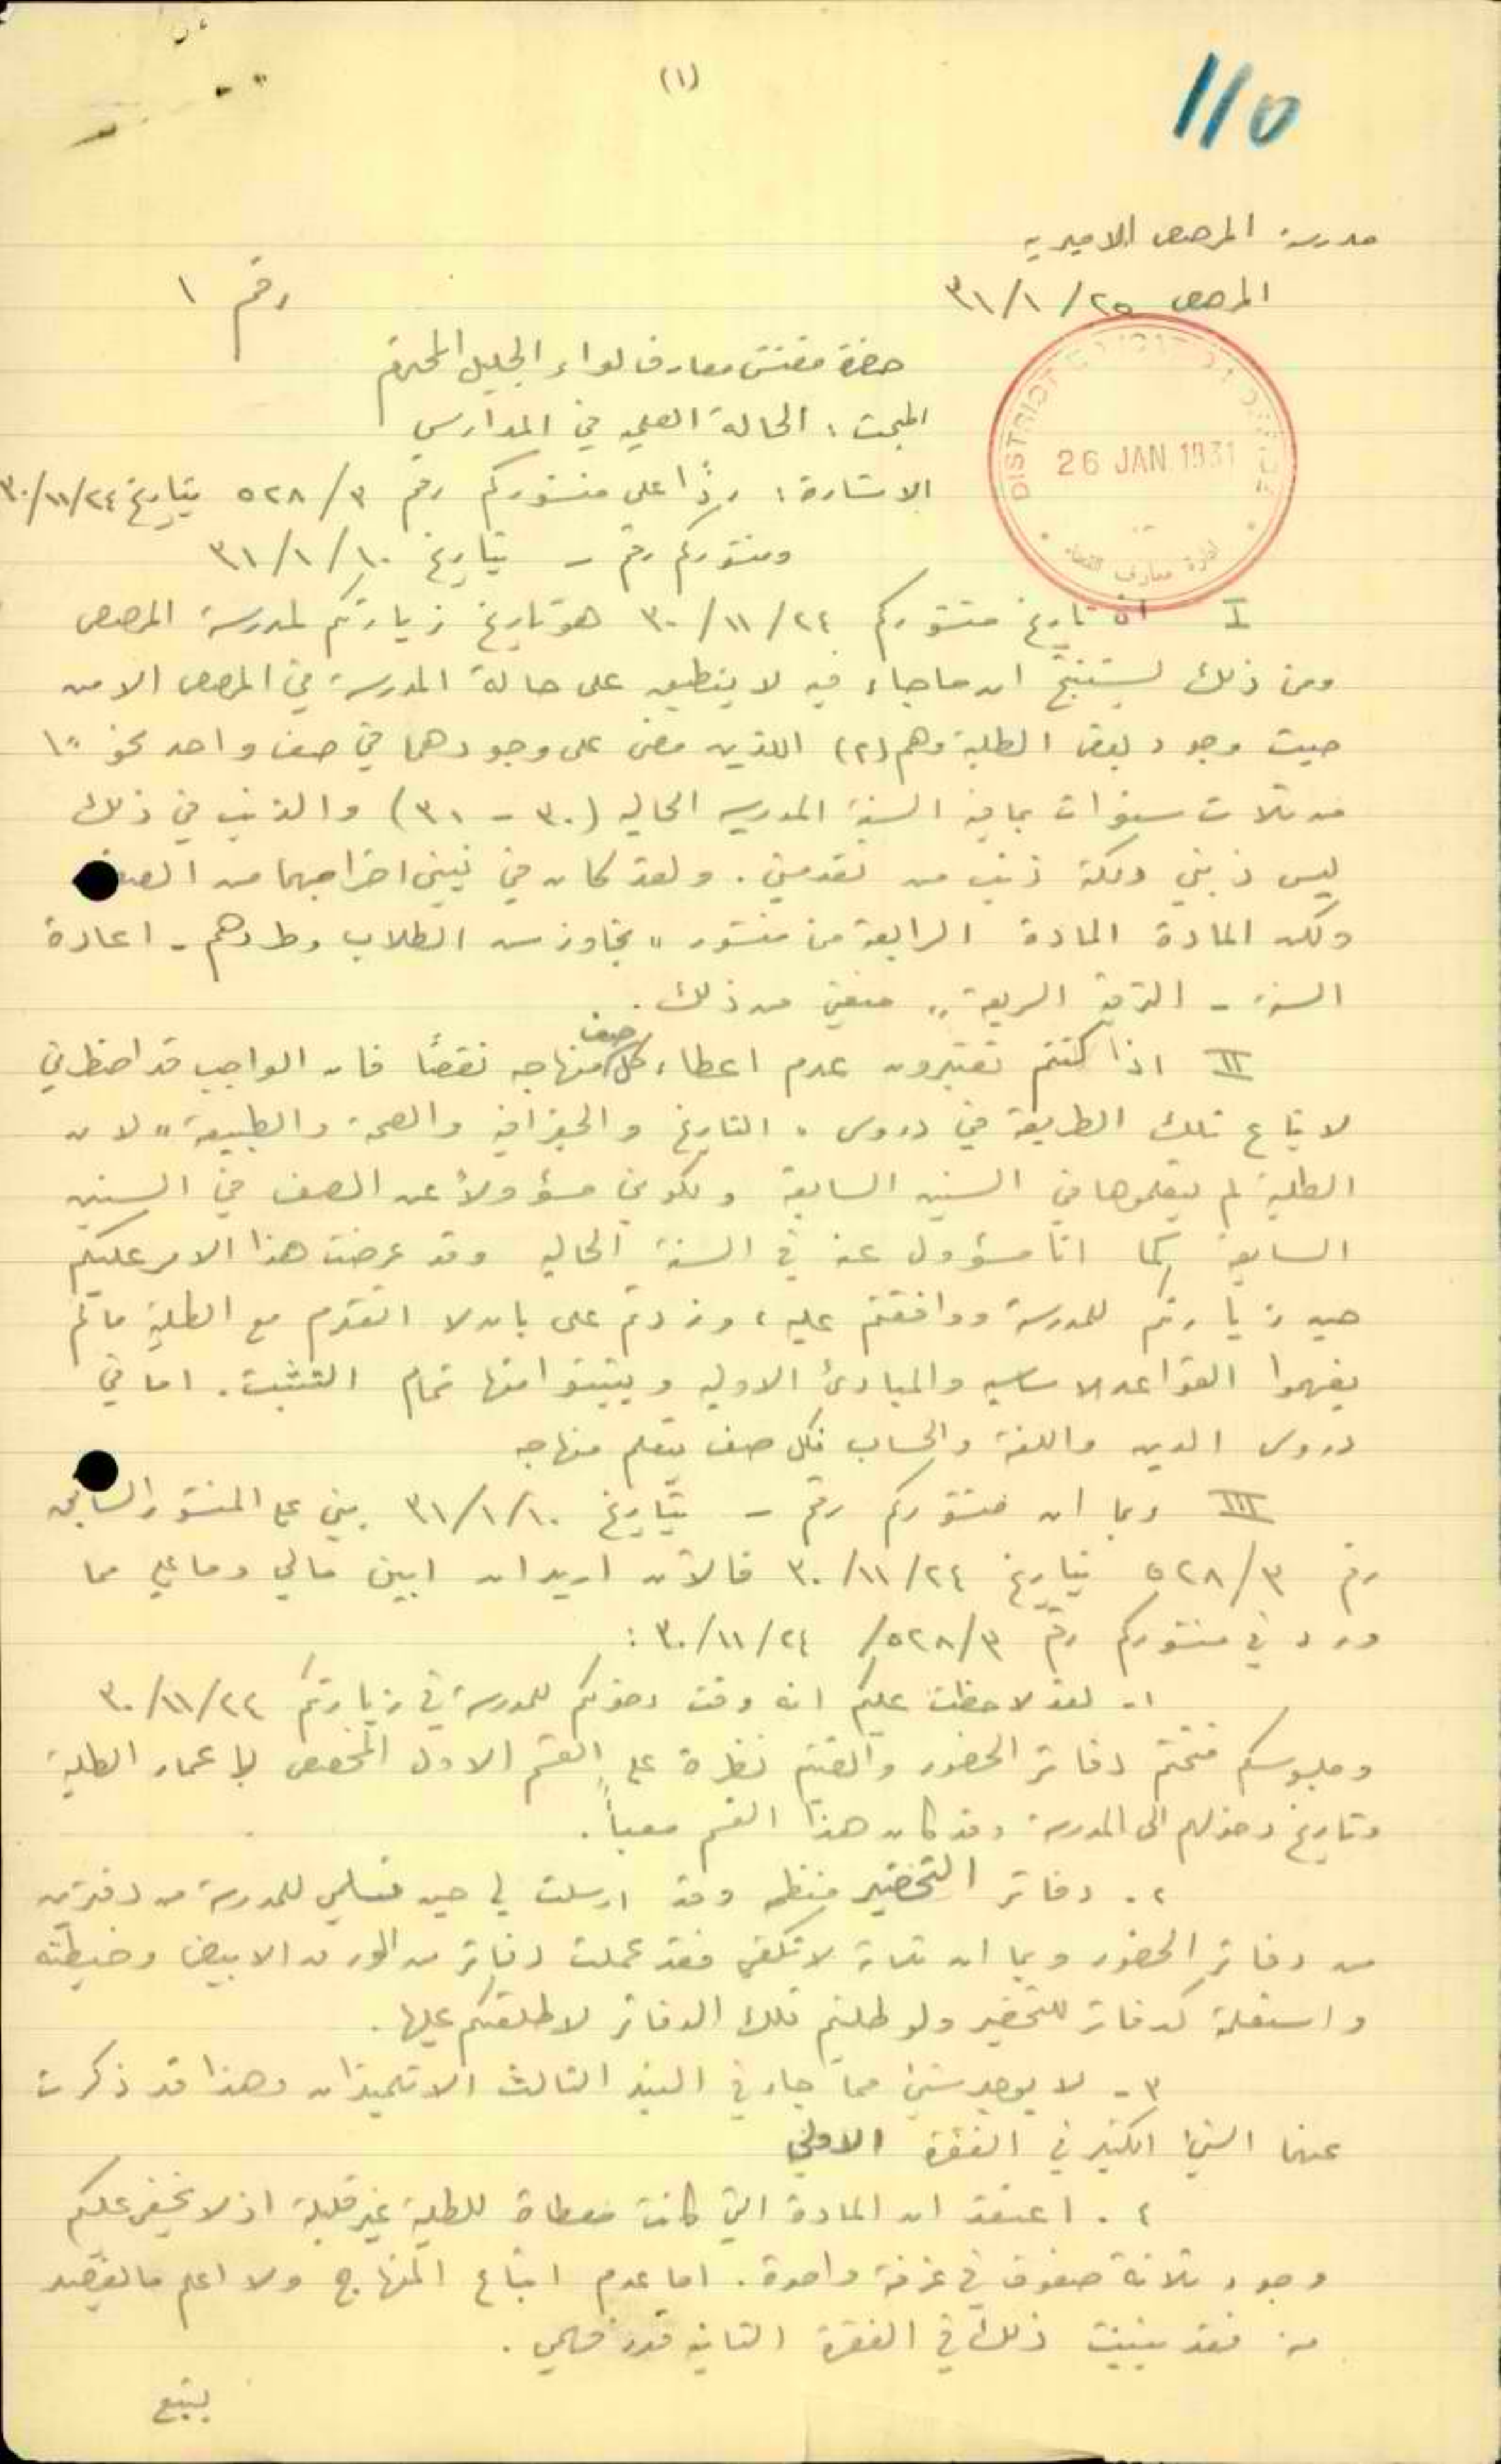 (١)
110
مدرسة المرصص الاميرية
المرصص ٢٥/١/٣١
رقم ١
حضرة مفتش معارف لواء الجليل المحترم
المبحث: الحالة العلمية في المدارس
الاشارة: ردًا على منشوركم رقم ٥٢٨/٣ بتاريخ ٣٠/١١/٢٤
ومنشوركم رقم – بتاريخ ٣١/١/١٠
DISTRICT
26 JAN 1931
ادارة معارف
I ان تاريخ منشوركم ٣٠/١١/٢٤ هو تاريخ زيارتكم لمدرسة المرصص
ومن ذلك يستنتج ان ما جاء فيه لا ينطبق على حالة المدرسة في المرصص الا من
حيث وجود بعض الطلبة وهم (٢) اللذين مضى على وجودهما في صف واحد نحو
من ثلاث سنوات بما فيه السنة المدرسيه الحاليه (٣٠ – ٣١) والذنب في ذلك
ليس ذنبي ولكنه ذنب من تقدمني. ولقد كان في نيتي اخراجهما من الصف
ولكن المادة المادة الرابعة من منشور "تجاوز سن الطلاب وطردهم – اعادة
السنة – الترقية السريعة" منعتني من ذلك.
II اذا كنتم تعتبرون عدم اعطاء كل صف منهاجه نقصًا فان الواجب قد اضطرني
لاتباع تلك الطريقة في دروس "التاريخ والجغرافيه والصحة والطبيعة" لان
الطلبة لم يتعلموها في السنين السابقة ولكوني مسؤولاً عن الصف في السنين
السابقة كما انا مسؤول عنه في السنة الحاليه وقد عرضت هذا الامر عليكم
حين زيارتكم للمدرسة ووافقتم عليه، وزدتم على بان لا اتقدم مع الطلبة ما لم
يفهموا القواعد الاساسيه والمبادئ الاوليه ويتثبتوا منها تمام التثبت. اما في
دروس الدين واللغة والحساب فكل صف يتعلم منهاجه
III وبما ان منشوركم رقم – بتاريخ ٣١/١/١٠ بني على المنشور السابق
رقم ٥٢٨/٣ بتاريخ ٣٠/١١/٢٤ فالآن اريد ان ابين مالي وما علي مما
ورد في منشوركم رقم ٥٢٨/٣/ ٣٠/١١/٢٤ :
١- لقد لاحظت عليكم انه وقت دخولكم للمدرسة في زيارتكم ٣٠/١١/٢٤
وجلوسكم فتحتم دفاتر الحضور وألقيتم نظرة على القسم الاول المخصص لاعمار الطلبة
وتاريخ دخولهم الى المدرسة وقد كان هذا القسم معبأً.
٢- دفاتر التحضير منظمه وقد ارسلت لي حين تسلمي للمدرسة من دفترين
من دفاتر الحضور وبما ان لا تكفي فقد عملت دفاتر من الورق الابيض وضبطته
واستعملته كدفاتر للتحضير ولو طلبتم تلك الدفاتر لاطلعتكم عليها.
٣- لا يوجد شيئ مما جاء في البند الثالث الا تلميذان وهذا قد ذكرت
عنهما الشيئ الكثير في الفقرة الاولى
٤- اعتقد ان المادة التي كانت معطاة للطلبة غير قليلة اذ لا يخفى عليكم
وجود ثلاثة صفوف في غرفة واحدة. اما عدم اتباع المنهاج ولا اعلم ما القصد
منه فقد بينت ذلك في الفقرة الثانيه قدر فهمي.
يتبع